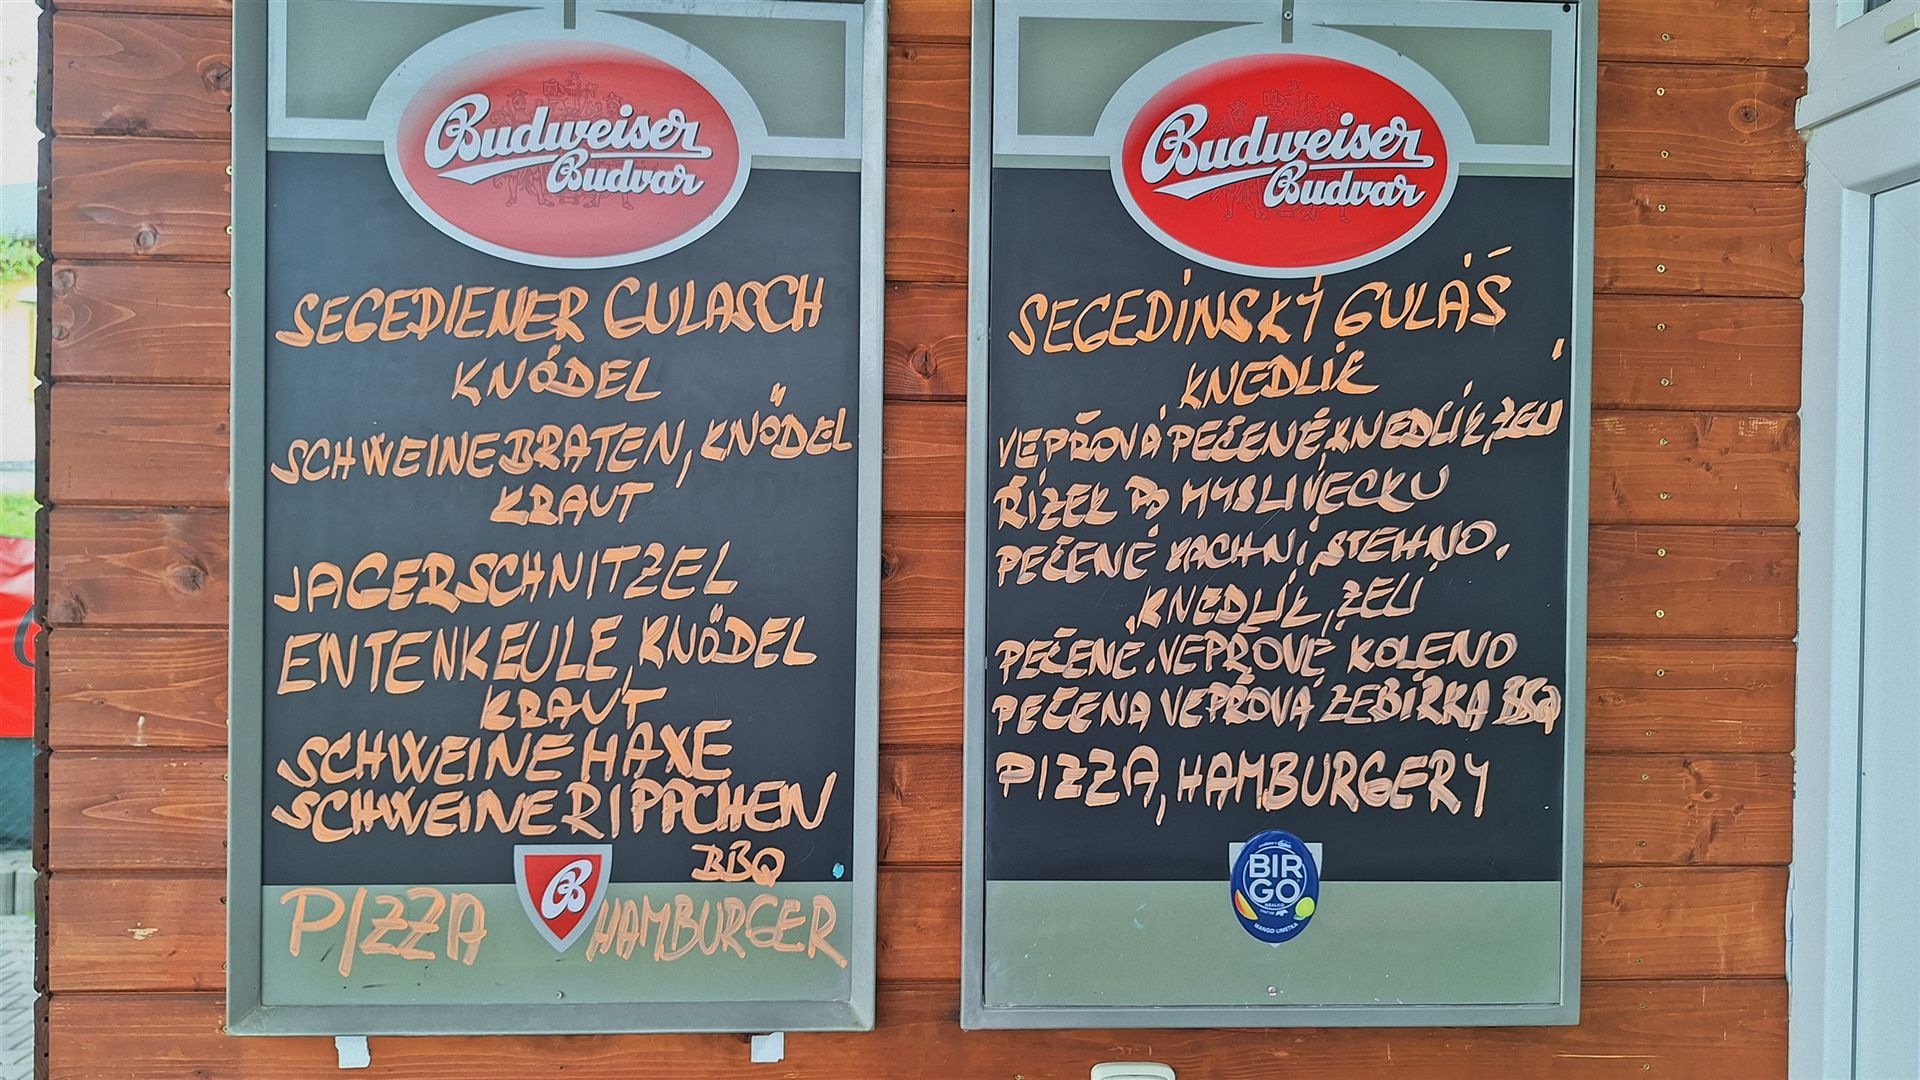 Budweiser
Budvar
SEGEDIENER GULASCH
KNÓDEL
SCHWEINEBRATEN, KNÖDEL
KRAUT
JAGERSCHNITZEL
ENTENKEULE, KNÖDEL
KRAUT
SCHWEINEHAXE
SCHWEINERIPPCHEN
BBQ
PIZZA HAMBURGER
B
Budweiser
Budvar
SEGEDÍNSKÝ GULÁŠ
KNEDLÍK
VEPŘOVÁ PEČENĚ KNEDLÍK, ZELÍ
ŘÍZEK PO MYSLIVECKU
PEČENÉ KACHNÍ STEHNO,
KNEDLÍK, ZELÍ
PEČENÉ VEPŘOVÉ KOLENO
PEČENÁ VEPŘOVÁ ŽEBÍRKA BBQ
PIZZA, HAMBURGERY
BIR
GO
NEALKO
MANGO LIMETKA